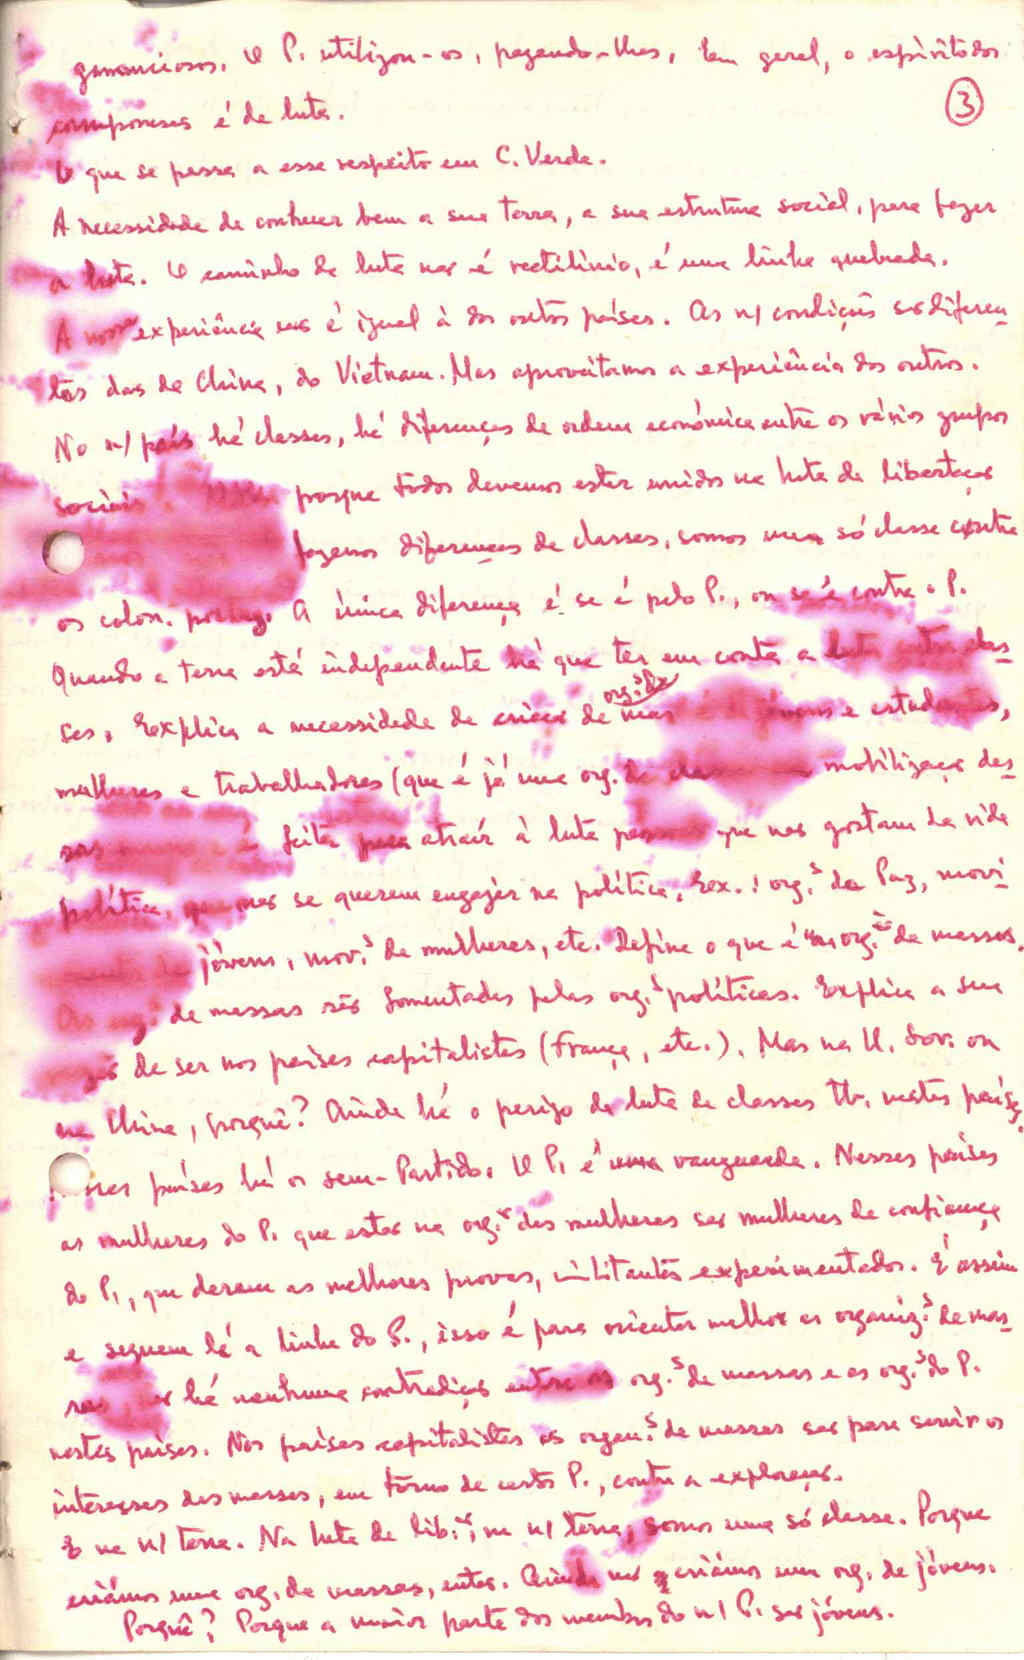 gananciosos. O P. utilizou-os, pagando-lhes, em geral, o espírito dos
camponeses é de luta.
③
O que se passa a esse respeito em C. Verde.
A necessidade de conhecer bem a sua terra, a sua estrutura social, para fazer
a luta. O caminho da luta não é rectilínio, é uma linha quebrada.
A nossa experiência não é igual à dos outros países. As n/ condições são diferen
tes das da China, do Vietnam. Mas aproveitamos a experiência dos outros.
No n/ país há classes, há diferenças de ordem económica entre os vários grupos
sociais. porque todos devemos estar unidos na luta de libertação
fazemos diferenças de classes, somos uma só classe contra
os colon. portug. A única diferença é se é pelo P., ou se é contra o P.
Quando a terra está independente há que ter em conta a luta entre clas
ses. Explica a necessidade de criar org.s de mas jóvens e estudantes,
mulheres e trabalhadores (que é já uma org. de mobilização des
sas é feita para atrair à luta pessoas que não gostam da vida
política, que não se querem engajar na política. Ex.: org.s da Paz, movi
mento de jóvens, mov.s de mulheres, etc. Define o que é uma org.ção de massas.
As org.s de massas são fomentadas pelas org.s políticas. Explica a sua
razão de ser nos países capitalistas (França, etc.). Mas na U. Sov. ou
na China, porquê? Ainda há o perigo da luta de classes tb. nestes países.
Nesses países há os sem-Partido. O P. é uma vanguarda. Nesses países
as mulheres do P. que estão na org.ção das mulheres são mulheres de confiança
do P., que deram as melhores provas, militantes experimentados. É assim
e seguem lá a linha do P., isso é para orientar melhor as organiz.s de mas
sas, não há nenhuma contradição entre as org.s de massas e as org.s do P.
nestes países. Nos países capitalistas as organ.s de massas são para servir os
interesses das massas, em torno de certos P., contra a exploração.
E na n/ terra. Na luta de lib.ção, na n/ terra, somos uma só classe. Porque
criámos uma org. de massas, então. Ainda não criámos uma org. de jóvens.
Porquê? Porque a maior parte dos membros do n/ P. são jóvens.